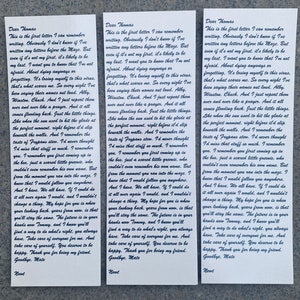 Dear Thomas
This is the first letter I can remember
writing. Obviously I don't know if I've
written any letters before the Maze. But
even if it's not my first, it's likely to be my
last. I want you to know that I'm not
afraid. About dying anyways or
forgetting. It's losing myself to this virus,
that's what scares me. So every night I've
been saying their names out loud. Alby,
Winston, Chuck. And I just repeat them
over and over like a prayer, and it all
comes flooding back. Just the little things
Like when the sun used to hit the glade at
the perfect moment, right before it'd slip
beneath the walls. And I remember the
taste of Frypans stew. I never thought
I'd miss that stuff so much. I remember
you, I remember you first coming up in
the box, just a scared greenie, who
couldn't even remember his own name. But
from the moment you ran into the maze, I
knew that I would follow you anywhere.
And I have. We all have. If I could do
it all over again I would, and I wouldn't
change a thing. My hope for you is when
your looking back, years from now, is that
you'll say the same. The future is in your
hands now Tommy, and I know you'll
find a way to do what's right, you always
have. Take care of everyone for me. And
take care of yourself. You deserve to be
happy. Thank you for being my friend.
Goodbye, Mate
Newt
Dear Thomas
This is the first letter I can remember
writing. Obviously I don't know if I've
written any letters before the Maze. But
even if it's not my first, it's likely to be my
last. I want you to know that I'm not
afraid. About dying anyways or
forgetting. It's losing myself to this virus,
that's what scares me. So every night I've
been saying their names out loud. Alby,
Winston, Chuck. And I just repeat them
over and over like a prayer, and it all
comes flooding back. Just the little things
Like when the sun used to hit the glade at
the perfect moment, right before it'd slip
beneath the walls. And I remember the
taste of Frypans stew. I never thought
I'd miss that stuff so much. I remember
you, I remember you first coming up in
the box, just a scared greenie, who
couldn't even remember his own name. But
from the moment you ran into the maze, I
knew that I would follow you anywhere.
And I have. We all have. If I could do
it all over again I would, and I wouldn't
change a thing. My hope for you is when
your looking back, years from now, is that
you'll say the same. The future is in your
hands now Tommy, and I know you'll
find a way to do what's right, you always
have. Take care of everyone for me. And
take care of yourself. You deserve to be
happy. Thank you for being my friend.
Goodbye, Mate
Newt
Dear Thomas
This is the first letter I can remember
writing. Obviously I don't know if I've
written any letters before the Maze. But
even if it's not my first, it's likely to be my
last. I want you to know that I'm not
afraid. About dying anyways or
forgetting. It's losing myself to this virus,
that's what scares me. So every night I've
been saying their names out loud. Alby,
Winston, Chuck. And I just repeat them
over and over like a prayer, and it all
comes flooding back. Just the little things
Like when the sun used to hit the glade at
the perfect moment, right before it'd slip
beneath the walls. And I remember the
taste of Frypans stew. I never thought
I'd miss that stuff so much. I remember
you, I remember you first coming up in
the box, just a scared greenie, who
couldn't even remember his own name. But
from the moment you ran into the maze, I
knew that I would follow you anywhere.
And I have. We all have. If I could do
it all over again I would, and I wouldn't
change a thing. My hope for you is when
your looking back, years from now, is that
you'll say the same. The future is in your
hands now Tommy, and I know you'll
find a way to do what's right, you always
have. Take care of everyone for me. And
take care of yourself. You deserve to be
happy. Thank you for being my friend.
Goodbye, Mate
Newt